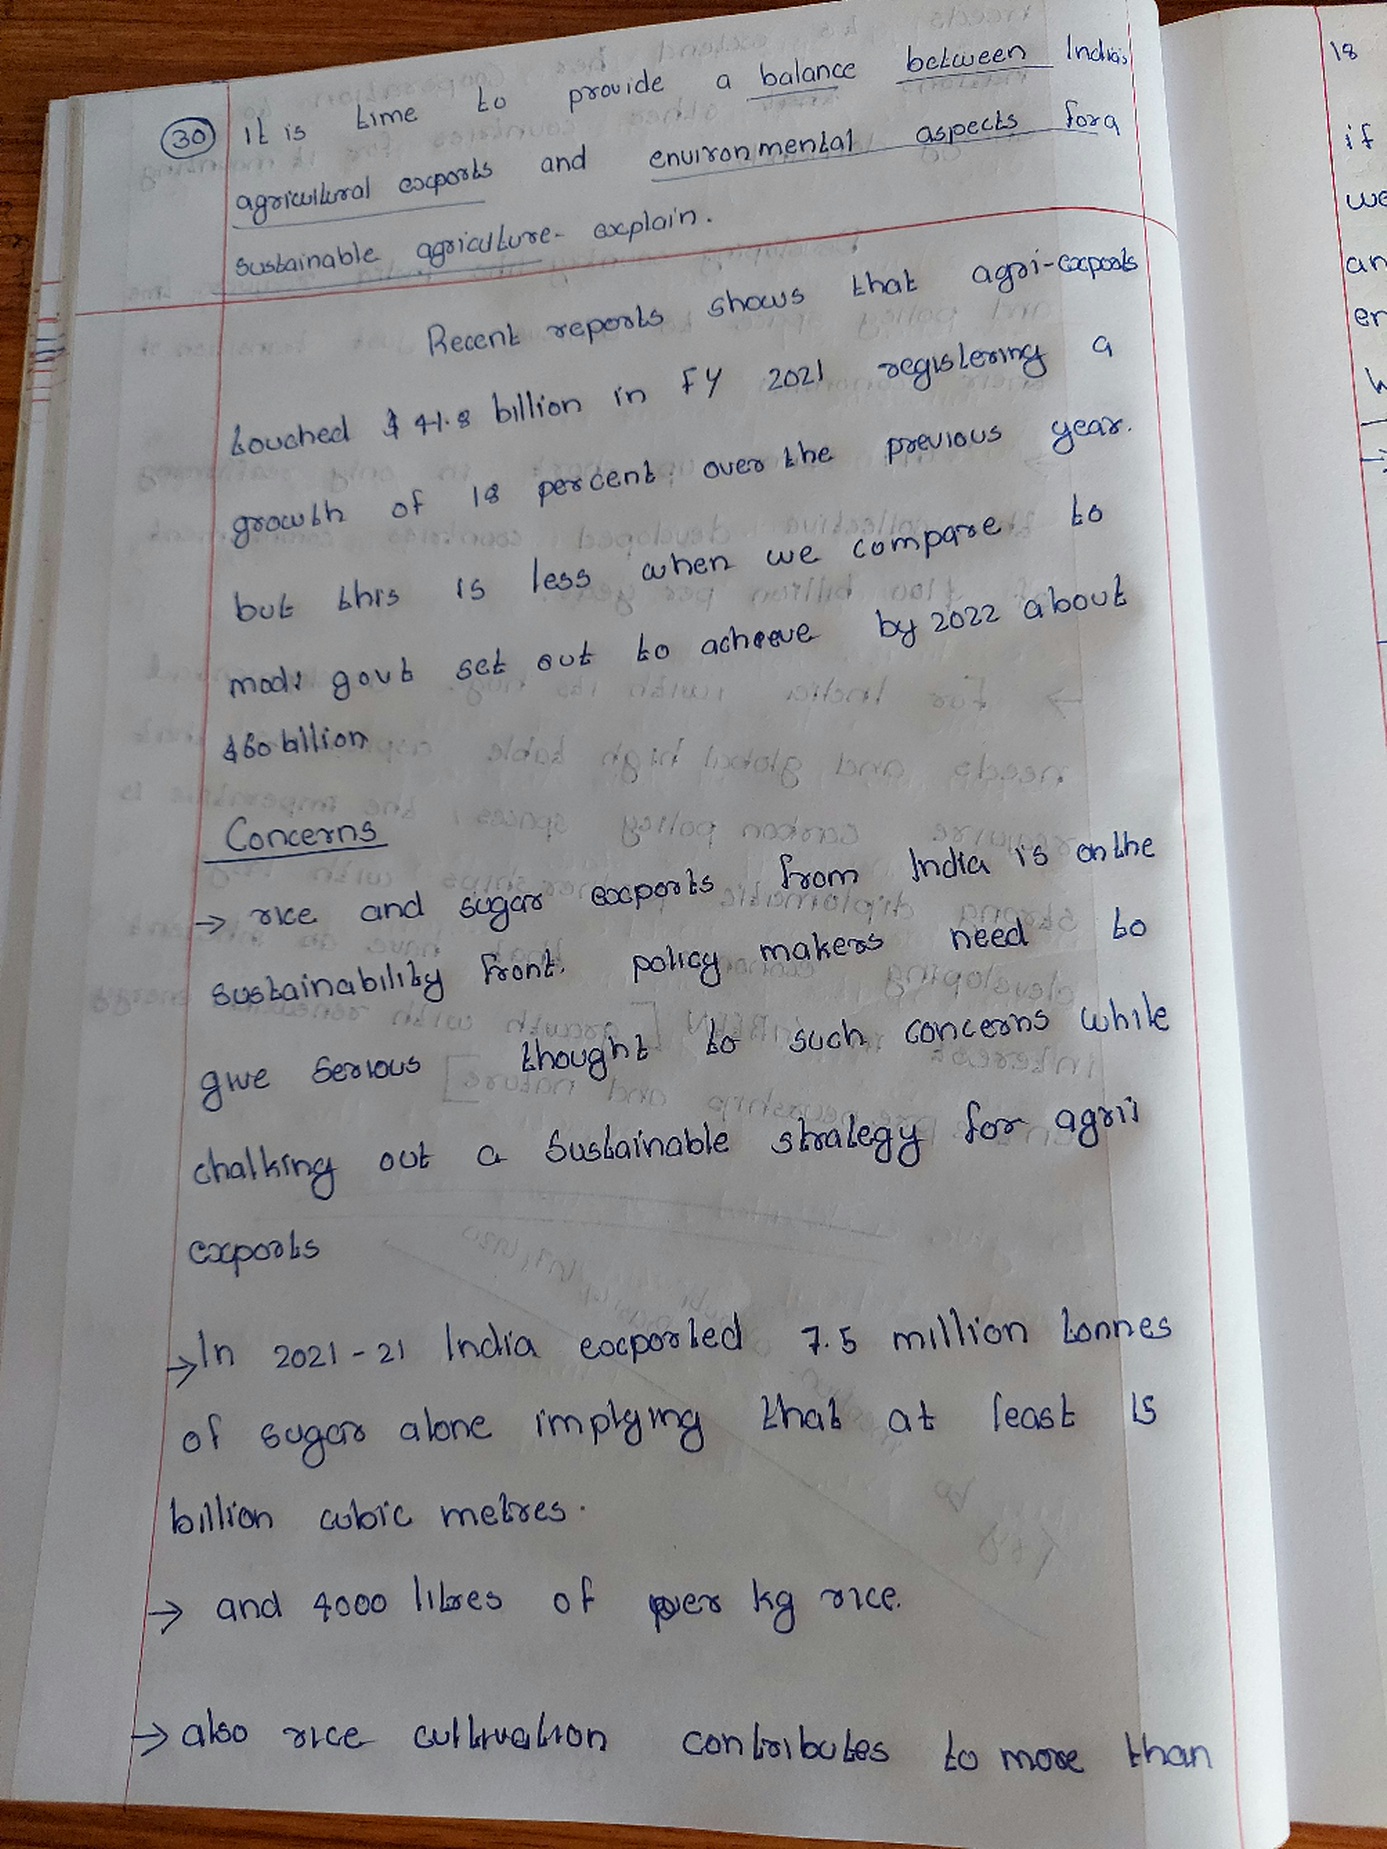 30 It is time to provide a balance between India's
agricultural exports and environmental aspects for a
sustainable agriculture - explain.
Recent reports shows that agri-exports
touched $ 41.8 billion in FY 2021 registering a
growth of 18 percent over the previous year.
but this is less when we compare to
modi govt set out to acheeve by 2022 about
$60 billion
Concerns
→ rice and sugar exports from India is on the
sustainability front. policy makers need to
give serious thought to such concerns while
chalking out a sustainable strategy for agrii
exports
→ In 2021-21 India exported 7.5 million tonnes
of sugar alone implying that at least 15
billion cubic metres.
→ and 4000 litres of per kg rice.
→ also rice cultivation contributes to more than
18
if
we
an
en